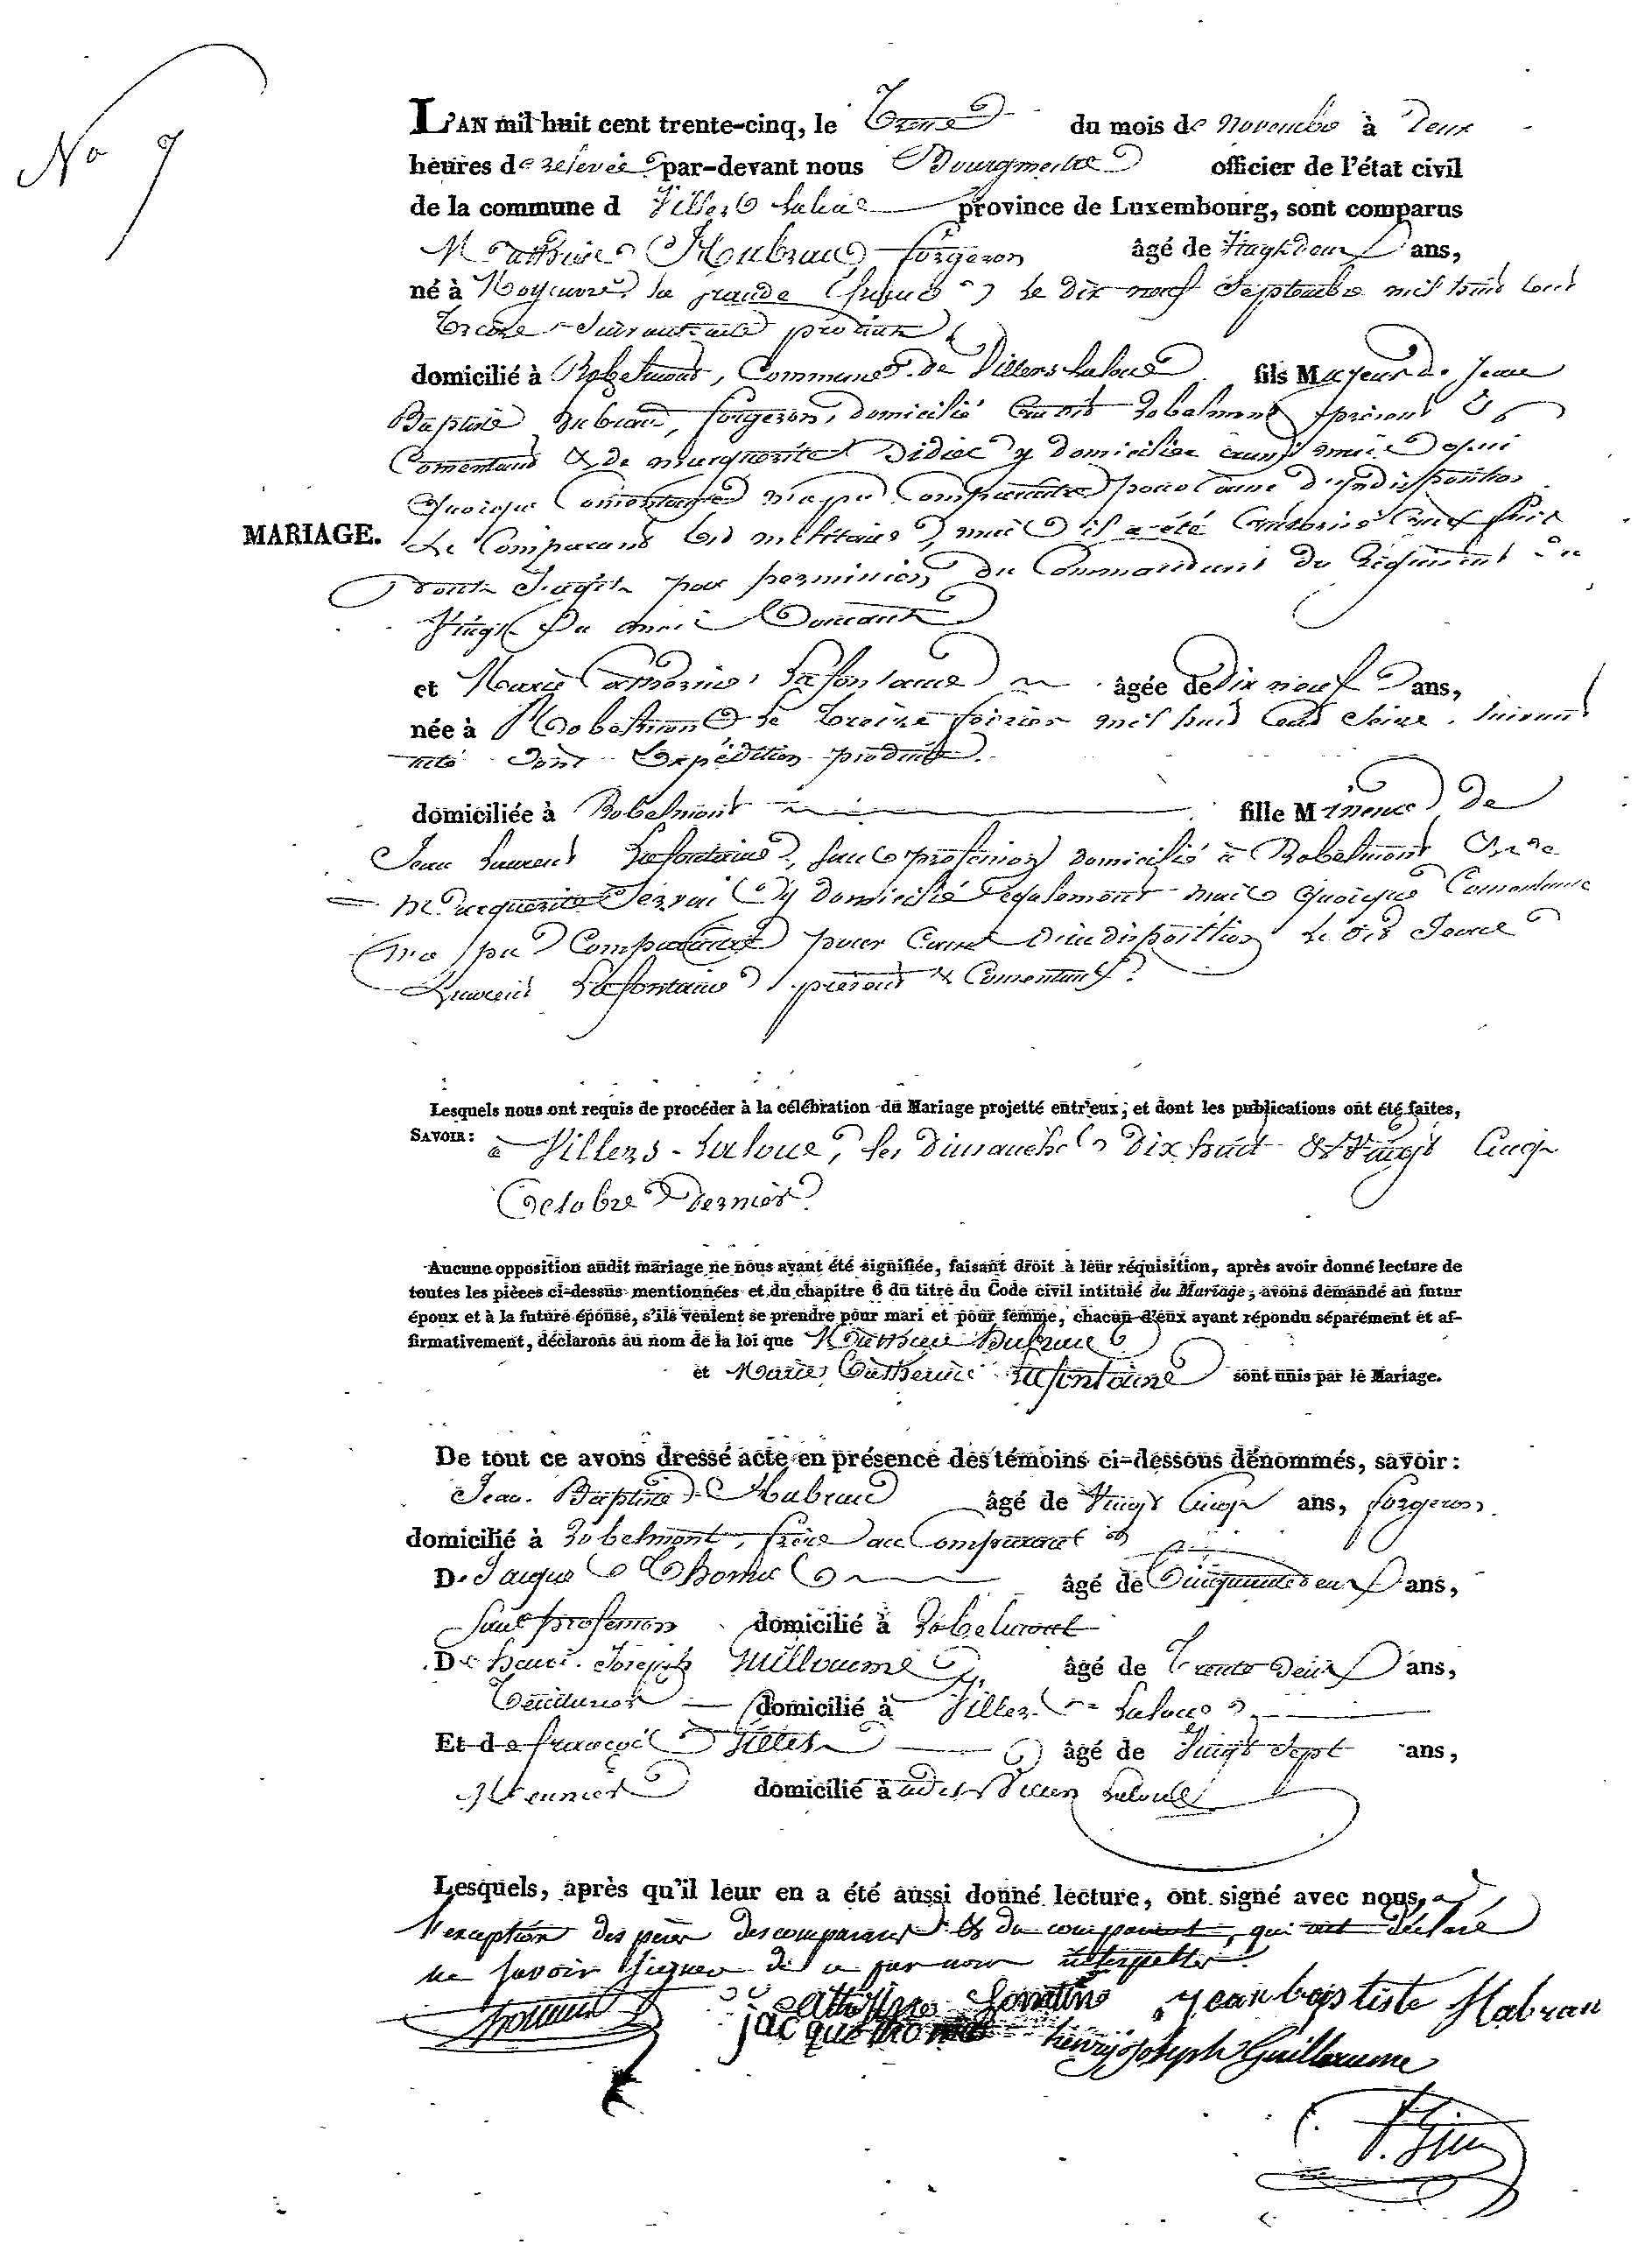 No 7
L'AN mil huit cent trente-cinq, le Onze du mois de Novembre à Deux
heures de relevée par-devant nous Bourgmestre officier de l'état civil
de la commune d Villers Laloue province de Luxembourg, sont comparus
Mathieu Habran forgeron âgé de Vingt deux ans,
né à Moyeuvre la grande le dix neuf Septembre mil huit cent
treize Suivant acte produit
domicilié à Robelmont, Commune de Villers Laloue fils Majeur de Jean
Baptiste habran, forgeron, domicilié audit Robelmont présent &
Consentant & de marguerite Didier y domiciliée aussi mais qui
quoique Consentante n'a pu Comparaitre pour Cause d'indisposition
MARIAGE.
Le Comparant est militaire, mais il a été autorisé aux fins
dont S'agit par permission du Commandant du Régiment du
Vingt du mois
et Marie Catherine Lafontaine âgée de Dix neuf ans,
née à Robelmont le treize février mil huit Cent Seize, Suivant
acte dont Expédition produite.
domiciliée à Robelmont fille Mineure de
Jean Laurent Lafontaine, Sans profession domicilié à Robelmont & de
Marguerite y domicilié également mais quoique Consentante
n'a pu Comparaitre pour Cause d'indisposition le dit Jean
Laurent Lafontaine présent & Consentant.
Lesquels nous ont requis de procéder à la célébration du Mariage projetté entr'eux; et dont les publications ont été faites,
SAVOIR: à Villers-Laloue, les Dimanches Dix huit & Vingt Cinq
Octobre Dernier
Aucune opposition audit mariage ne nous ayant été signifiée, faisant droit à leur réquisition, après avoir donné lecture de
toutes les pièces ci-dessus mentionnées et du chapitre 6 du titre du Code civil intitulé du Mariage, avons demandé au futur
époux et à la future épouse, s'ils veulent se prendre pour mari et pour femme, chacun d'eux ayant répondu séparément et af-
firmativement, déclarons au nom de la loi que Mathieu Habran
et Marie Catherine Lafontaine sont unis par le Mariage.
De tout ce avons dressé acte en présence des témoins ci-dessous dénommés, savoir:
Jean Baptiste Habran âgé de Vingt Cinq ans, forgeron
domicilié à Robelmont, frère au Comparant
De Jacques Thomas âgé de Cinquante deux ans,
Sans profession domicilié à Robelmont
De henri Joseph Guillaume âgé de Trente Deux ans,
domicilié à Villers Laloue
Et de françois Gilles âgé de Vingt Sept ans,
Meunier domicilié à Laloue
Lesquels, après qu'il leur en a été aussi donné lecture, ont signé avec nous, à
l'exception des pères des comparants & du comparant, qui ont déclaré
ne savoir signer de ce par nous interpellés.
jean baptiste Habran
jacque thomas henry joseph Guillaume